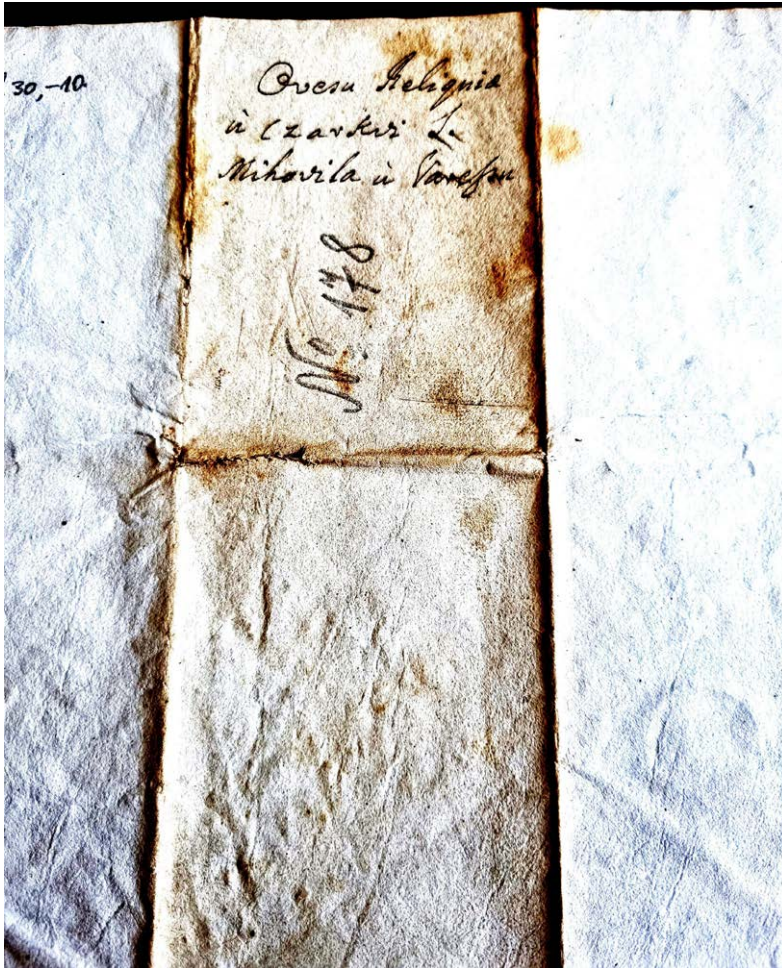 30,-10
Ovesu Reliquia
ù Czarkvi S.
Mihovila ù Varessu
No 178